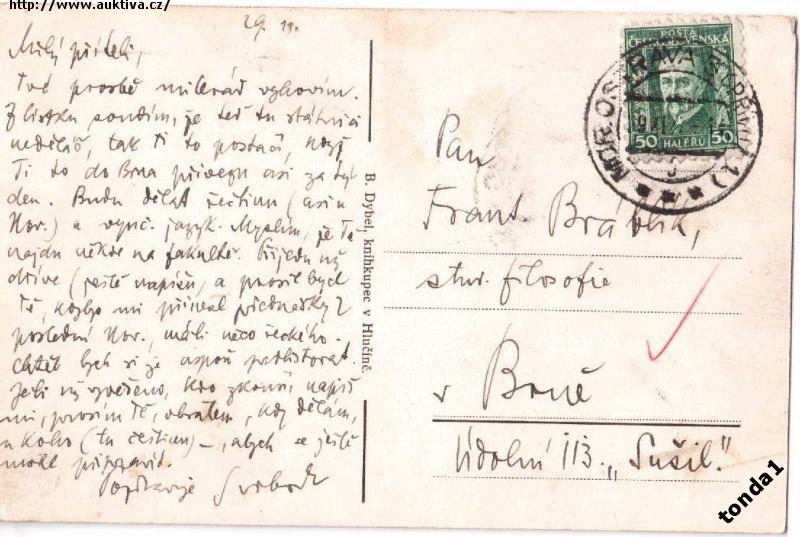 http://www.auktiva.cz/
29. 11.
Milý příteli,
Tvé prosbě milerád vyhovím.
Z lístku soudím, je teď tu státnici
nedělá, tak Ti to postačí, když
Ti to do Brna přivezu asi za týd
den. Budu dělat češtinu (asi u
Nov.) a vynč. jazyk. Myslím, že Tě
najdu někde na fakultě. Přijedu už
dříve (ještě napíšu, a prosil bych
Tě, kdyby mi přinesl přednášky z
poslední Nov., máš-li něco českého.
Chtěl bych si je aspoň prolistovat.
Je-li už vyvěšeno, kdo zkouší, napiš
mi, prosím Tě, obratem, kdy dělám,
u koho (tu češtinu) –, abych se ještě
mohl připravit.
Pozdravuje Svoboda
B. Dybel, knihkupec v Hlučíně.
POSTA
ČESKOSLOVENSKÁ
50 HALÉŘŮ 50
MOR. OSTRAVA
Pan
Frant. Bráblík,
stud. filosofie
v Brně
Údolní 113. „Sušil."
tonda1